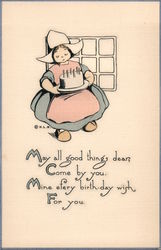 © K.L.M.
May all good things dear,
Come by you.
Mine every birth-day wish,
For you.